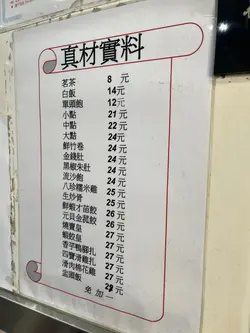 真材實料
茗茶 8 元
白飯 14元
單頭鮑 12元
小點 21 元
中點 22 元
大點 24 元
鮮竹卷 24 元
金錢肚 24 元
黑椒朱肚 24 元
流沙飽 24 元
八珍糯米雞 25 元
生炒骨 25 元
鮮蝦才苗餃 26 元
元貝金菰餃 26 元
燒賣皇 27 元
蝦餃皇 27 元
香芋鴨腳扎 27 元
四寶滑雞扎 27 元
滑肉棉花雞 27 元
盅頭飯 28元
免加一